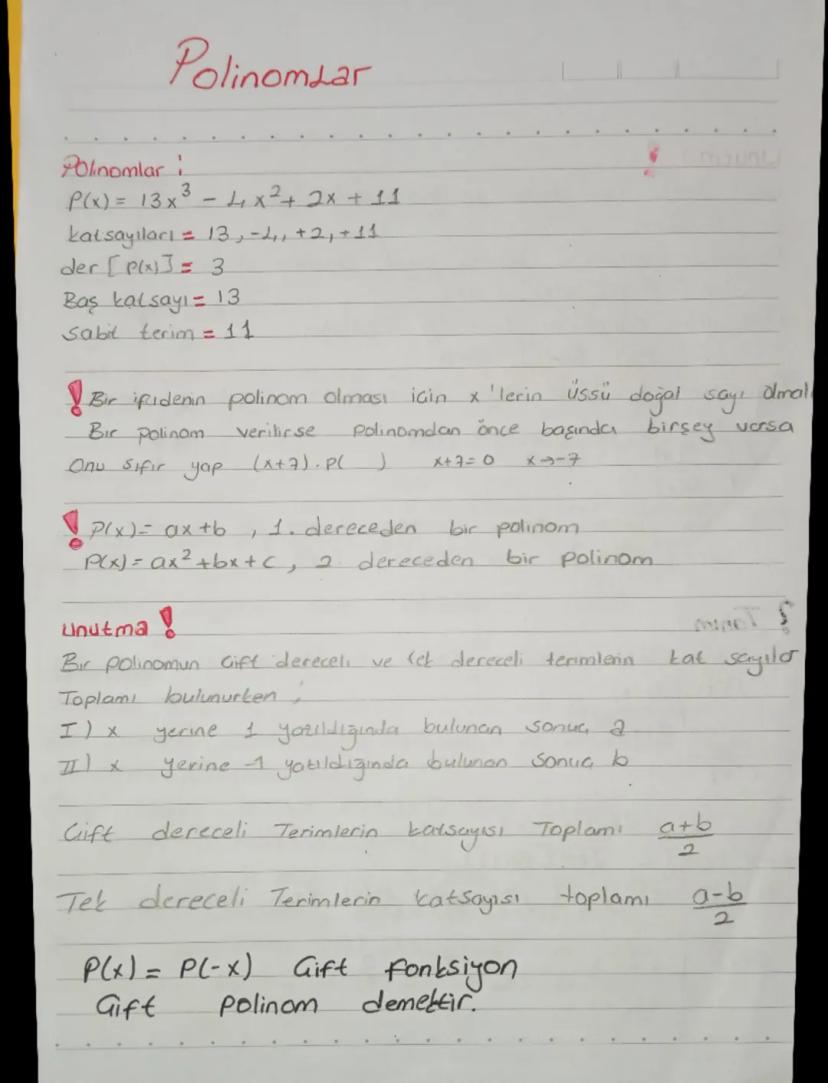 Polinomlar
Polinomlar :
P(x) = 13x³ - 4x² + 2x + 11
katsayıları = 13, -4, +2, +11
der [P(x)] = 3
Baş katsayı = 13
Sabit terim = 11
! Bir ifidenin polinom olması için x 'lerin üssü doğal sayı olmal
Bir polinom verilirse polinomdan önce başında birşey varsa
Onu sıfır yap (x+7).P( ) x+7=0 x→-7
! P(x) = ax+b , 1. dereceden bir polinom
P(x) = ax²+bx+c, 2 dereceden bir polinom
unutma !
Bir polinomun Çift dereceli ve tek dereceli terimlerin kat sayılar
Toplamı bulunurken ;
I) x yerine 1 yazıldığında bulunan sonuç a
II) x yerine -1 yazıldığında bulunan sonuç b
Çift dereceli Terimlerin katsayısı Toplamı a+b/2
Tek dereceli Terimlerin katsayısı toplamı a-b/2
P(x) = P(-x) Çift fonksiyon
Çift polinom demektir.